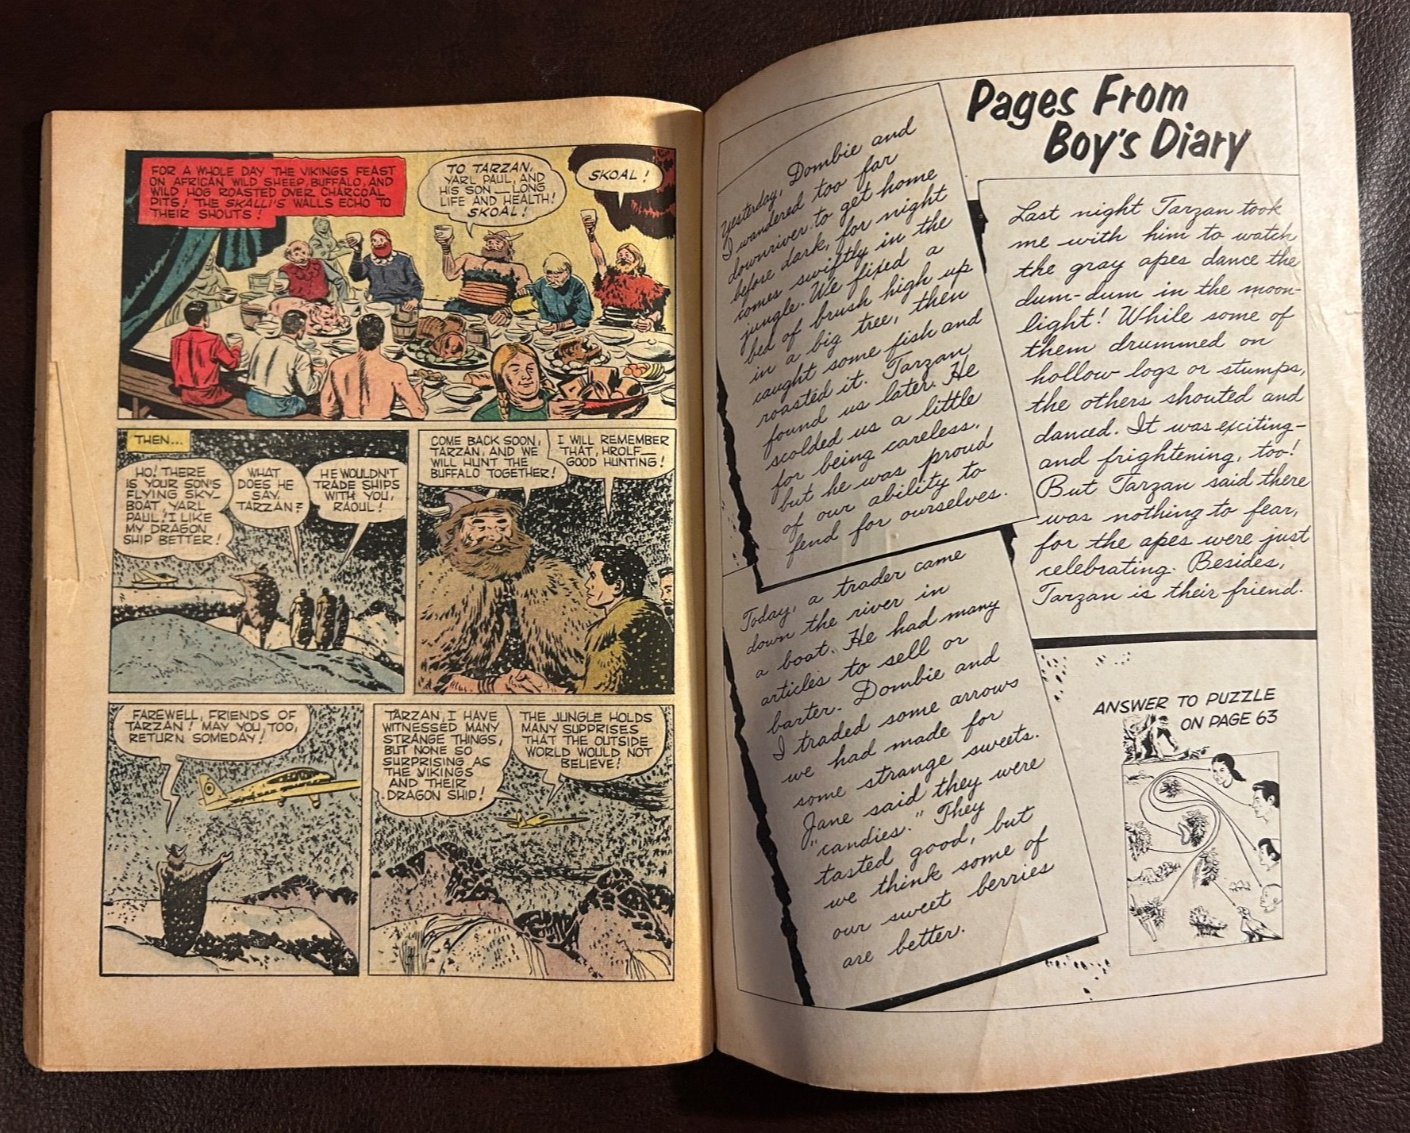 FOR A WHOLE DAY THE VIKINGS FEAST
ON AFRICAN WILD SHEEP, BUFFALO, AND
WILD HOG ROASTED OVER CHARCOAL
PITS! THE SKALLI'S WALLS ECHO TO
THEIR SHOUTS!
TO TARZAN,
YARL PAUL, AND
HIS SON — LONG
LIFE AND HEALTH!
SKOAL!
SKOAL!
THEN...
HO! THERE
IS YOUR SON'S
FLYING SKY-
BOAT, YARL
PAUL! I LIKE
MY DRAGON
SHIP BETTER!
WHAT
DOES HE
SAY,
TARZAN?
HE WOULDN'T
TRADE SHIPS
WITH YOU,
RAOUL!
COME BACK SOON,
TARZAN, AND WE
WILL HUNT THE
BUFFALO TOGETHER!
I WILL REMEMBER
THAT, HROLF —
GOOD HUNTING!
FAREWELL, FRIENDS OF
TARZAN! MAY YOU, TOO,
RETURN SOMEDAY!
TARZAN, I HAVE
WITNESSED MANY
STRANGE THINGS,
BUT NONE SO
SURPRISING AS
THE VIKINGS
AND THEIR
DRAGON SHIP!
THE JUNGLE HOLDS
MANY SURPRISES
THAT THE OUTSIDE
WORLD WOULD NOT
BELIEVE!
Pages From
Boy's Diary
Yesterday, Dombie and
I wandered too far
downriver to get home
before dark, for night
comes swiftly in the
jungle. We fixed a
bed of brush high up
in a big tree, then
caught some fish and
roasted it. Tarzan
found us later. He
scolded us a little
for being careless,
but he was proud
of our ability to
fend for ourselves.
Last night Tarzan took
me with him to watch
the gray apes dance the
dum-dum in the moon-
light! While some of
them drummed on
hollow logs or stumps,
the others shouted and
danced. It was exciting-
and frightening, too!
But Tarzan said there
was nothing to fear,
for the apes were just
celebrating. Besides,
Tarzan is their friend.
Today, a trader came
down the river in
a boat. He had many
articles to sell or
barter. Dombie and
I traded some arrows
we had made for
some strange sweets.
Jane said they were
"candies." They
tasted good, but
we think some of
our sweet berries
are better.
ANSWER TO PUZZLE
ON PAGE 63